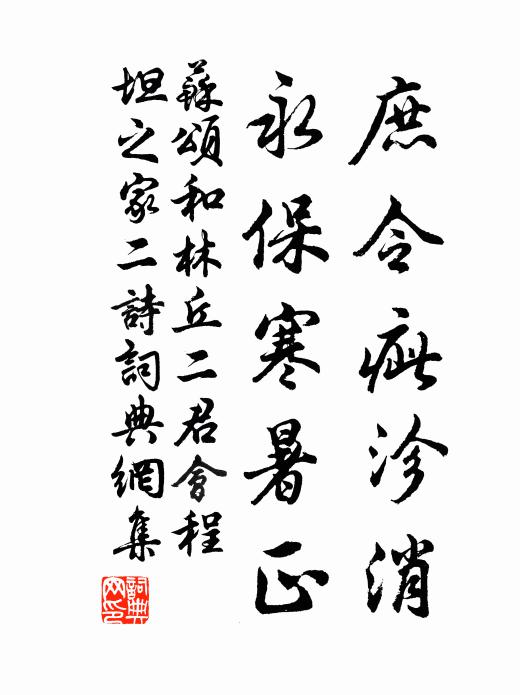 庶令疵沴消
永保寒暑正
蘇頌和林丘二君會程
坦之家二詩詞典網集